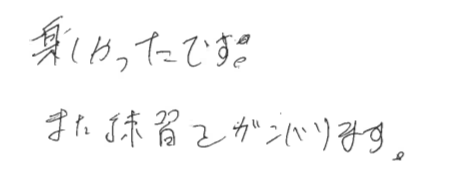 楽しかったです!!
また練習をがんばります。